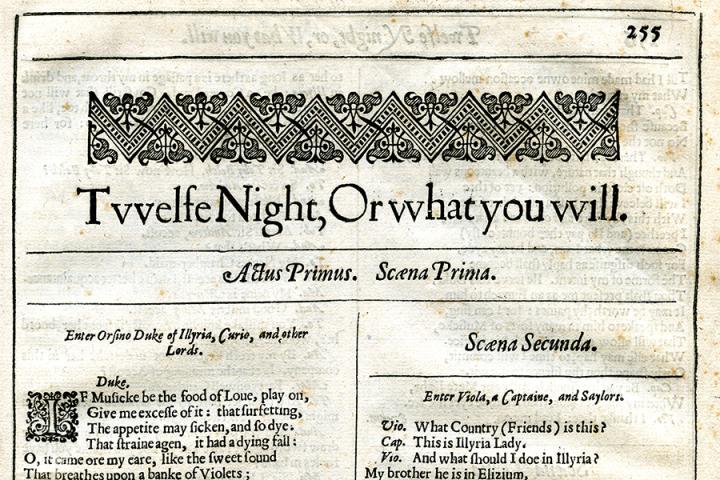 255
Tvvelfe Night, Or vvhat you vvill.
Actus Primus. Scæna Prima.
Enter Orsino Duke of Illyria, Curio, and other
Lords.
Duke.
IF Musicke be the food of Loue, play on,
Giue me excesse of it: that surfetting,
The appetite may sicken, and so dye.
That straine agen, it had a dying fall:
O, it came ore my eare, like the sweet sound
That breathes upon a banke of Violets;
Scæna Secunda.
Enter Viola, a Captaine, and Saylors.
Vio. What Country (Friends) is this?
Cap. This is Illyria Lady.
Vio. And what should I doe in Illyria?
My brother he is in Elizium,